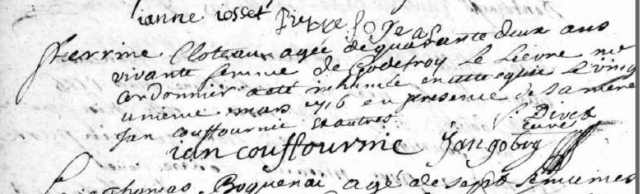 ianne iosset pierre
perrine Cloteau agée de quarante deux ans
vivante femme de Godefroy Le Lievre me
cordonnier a été inhumée en cette eglise le vingt
unieme mars 1716 en presence de sa mere
jan couffournie et autres
ian couffournie jan
curé
Thomas Boguenai agé de sept semaines